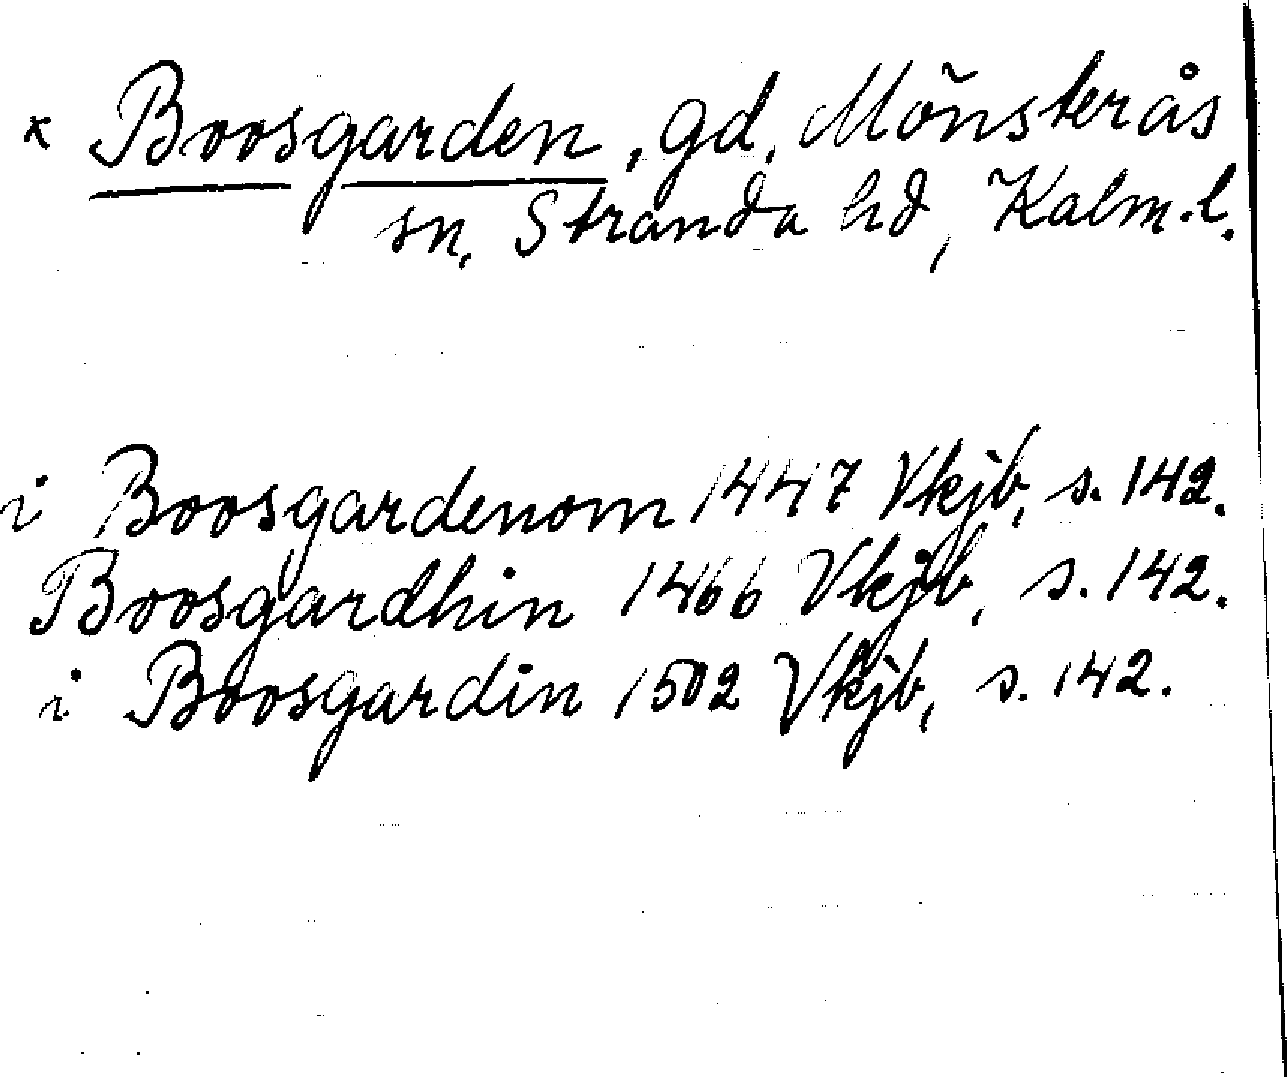 × Boosgarden, gd, Mönsterås
sn, Stranda hd, Kalm.l.
i Boosgardenom 1447 Vkjb, s. 142.
Boosgardhin 1466 Vkjb, s. 142.
i Boosgardin 1502 Vkjb, s. 142.